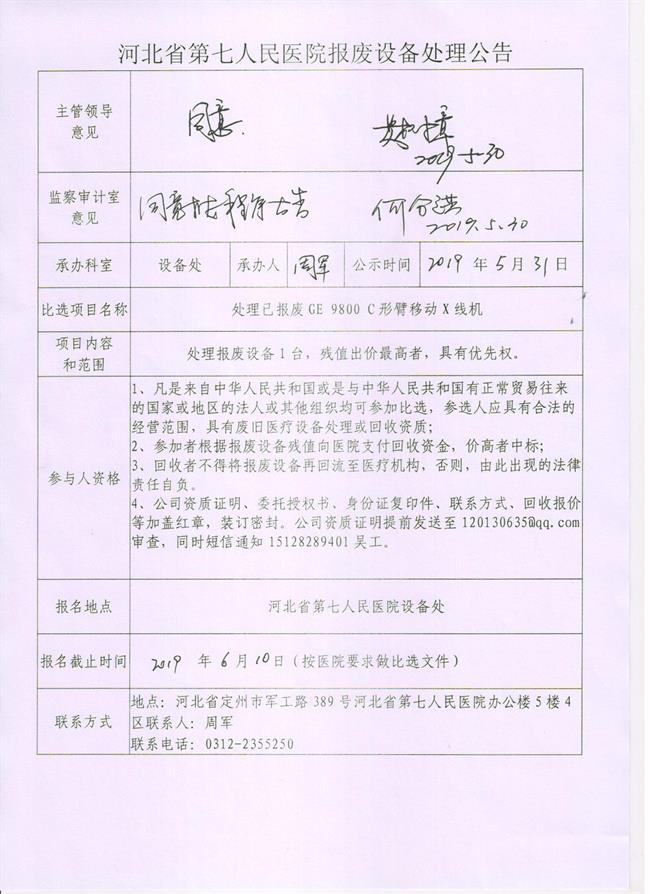 河北省第七人民医院报废设备处理公告
主管领导
意见
同意.
2019.5.30
监察审计室
意见
同意
2019.5.30
承办科室 设备处 承办人 周军 公示时间 2019 年 5 月 31 日
比选项目名称 处理已报废 GE 9800 C 形臂移动 X 线机
项目内容
和范围
处理报废设备 1 台，残值出价最高者，具有优先权。
参与人资格
1、凡是来自中华人民共和国或是与中华人民共和国有正常贸易往来
的国家或地区的法人或其他组织均可参加比选，参选人应具有合法的
经营范围，具有废旧医疗设备处理或回收资质;
2、参加者根据报废设备残值向医院支付回收资金，价高者中标;
3、回收者不得将报废设备再回流至医疗机构，否则，由此出现的法律
责任自负。
4、公司资质证明、委托授权书、身份证复印件、联系方式、回收报价
等加盖红章，装订密封。公司资质证明提前发送至 120130635@qq.com
审查，同时短信通知 15128289401 吴工。
报名地点 河北省第七人民医院设备处
报名截止时间 2019 年 6 月 10 日（按医院要求做比选文件）
联系方式
地点: 河北省定州市军工路 389 号河北省第七人民医院办公楼 5 楼 4
区联系人: 周军
联系电话: 0312-2355250